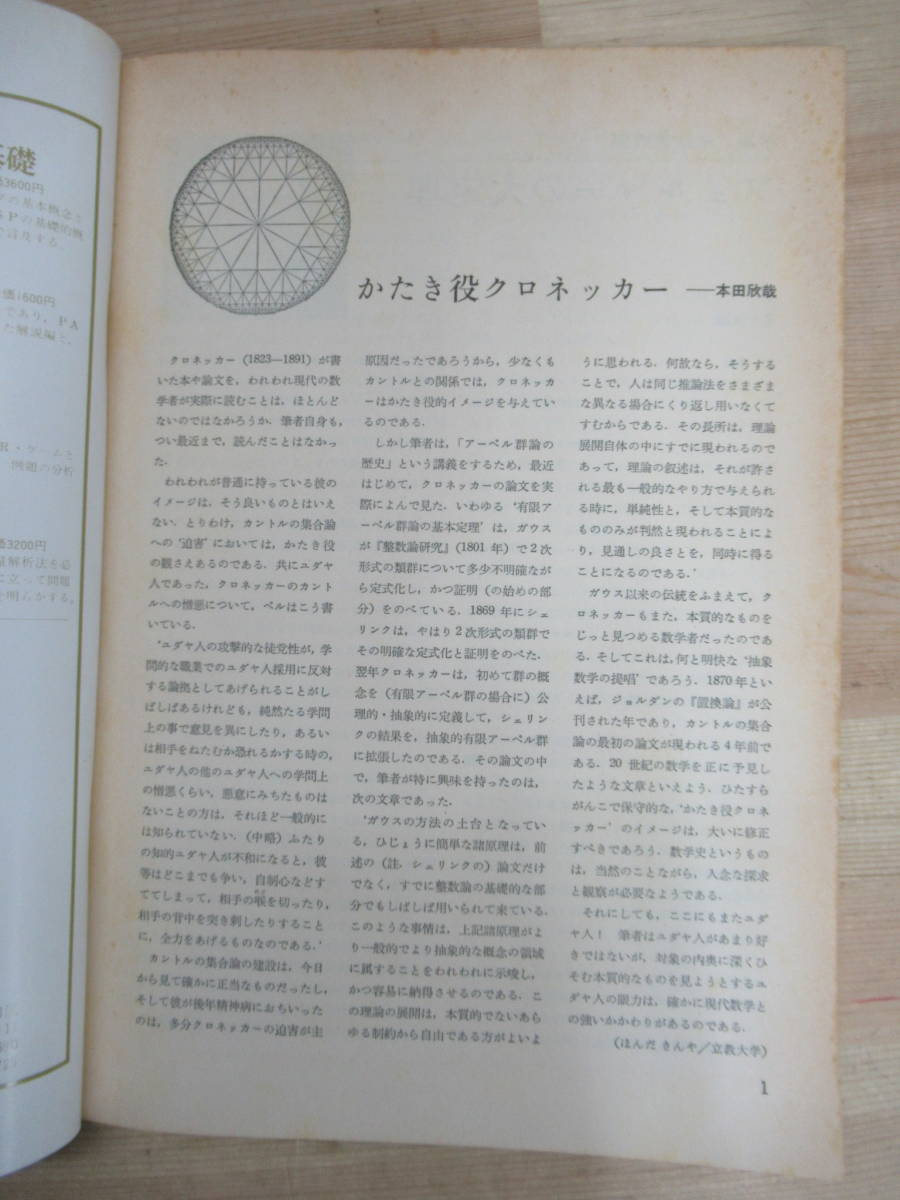 基礎
価3600円
の基本概念と
Pの基礎的概
で言及する.
価1600円
であり, PA
た解説編と,
R・ゲームと
例題の分析
価3200円
量解析法を必
に立って問題
を明らかする.
かたき役クロネッカー ──本田欣哉
クロネッカー (1823—1891) が書
いた本や論文を, われわれ現代の数
学者が実際に読むことは, ほとんど
ないのではなかろうか. 筆者自身も,
つい最近まで, 読んだことはなかっ
た.
われわれが普通に持っている彼の
イメージは, そう良いものとはいえ
ない. とりわけ, カントルの集合論
への ‘迫害’ においては, かたき役
の観さえあるのである. 共にユダヤ
人であった, クロネッカーのカント
ルへの憎悪について, ベルはこう書
いている.
‘ユダヤ人の攻撃的な徒党性が, 学
問的な職業でのユダヤ人採用に反対
する論拠としてあげられることがし
ばしばあるけれども, 純然たる学問
上の事で意見を異にしたり, あるい
は相手をねたむか恐れるかする時の,
ユダヤ人の他のユダヤ人への学問上
の憎悪くらい, 悪意にみちたものは
ないことの方は, それほど一般的に
は知られていない. (中略) ふたり
の知的ユダヤ人が不和になると, 彼
等はどこまでも争い, 自制心などす
ててしまって, 相手の喉を切ったり,
相手の背中を突き刺したりすること
に, 全力をあげるものなのである.’
カントルの集合論の建設は, 今日
から見て確かに正当なものだったし,
そして彼が後年精神病におちいった
のは, 多分クロネッカーの迫害が主
原因だったであろうから, 少なくも
カントルとの関係では, クロネッカ
ーはかたき役的イメージを与えてい
るのである.
しかし筆者は, 「アーベル群論の
歴史」という講義をするため, 最近
はじめて, クロネッカーの論文を実
際によんで見た. いわゆる ‘有限ア
ーベル群論の基本定理’ は, ガウス
が『整数論研究』(1801 年) で2次
形式の類群について多少不明確なが
ら定式化し, かつ証明 (の始めの部
分) をのべている. 1869 年にシェ
リンクは, やはり2次形式の類群で
その明確な定式化と証明をのべた.
翌年クロネッカーは, 初めて群の概
念を (有限アーベル群の場合に) 公
理的・抽象的に定義して, シェリン
クの結果を, 抽象的有限アーベル群
に拡張したのである. その論文の中
で, 筆者が特に興味を持ったのは,
次の文章であった.
‘ガウスの方法の土台となってい
る, ひじょうに簡単な諸原理は, 前
述の (註. シェリンクの) 論文だけ
でなく, すでに整数論の基礎的な部
分でもしばしば用いられて来ている.
このような事情は, 上記諸原理がよ
り一般的でより抽象的な概念の領域
に属することをわれわれに示唆し,
かつ容易に納得させるのである. こ
の理論の展開は, 本質的でないあら
ゆる制約から自由である方がよいよ
うに思われる. 何故なら, そうする
ことで, 人は同じ推論法をさまざま
な異なる場合にくり返し用いなくて
すむからである. その長所は, 理論
展開自体の中にすでに現われるので
あって, 理論の叙述は, それが許さ
れる最も一般的なやり方で与えられ
る時に, 単純性と, そして本質的な
もののみが判然と現われることによ
り, 見通しの良さとを, 同時に得る
ことになるのである.’
ガウス以来の伝統をふまえて, ク
ロネッカーもまた, 本質的なものを
じっと見つめる数学者だったのであ
る. そしてこれは, 何と明快な ‘抽象
数学の提唱’ であろう. 1870 年とい
えば, ジョルダンの『置換論』が公
刊された年であり, カントルの集合
論の最初の論文が現われる4年前で
ある. 20 世紀の数学を正に予見し
たような文章といえよう. ひたすら
がんこで保守的な, ‘かたき役クロネ
ッカー’ のイメージは, 大いに修正
すべきであろう. 数学史というもの
は, 当然のことながら, 入念な探求
と観察が必要なようである.
それにしても, ここにもまたユダ
ヤ人! 筆者はユダヤ人があまり好
きではないが, 対象の内奥に深くひ
そむ本質的なものを見ようとするユ
ダヤ人の眼力は, 確かに現代数学と
の強いかかわりがあるのである.
(ほんだ きんや／立教大学)
1